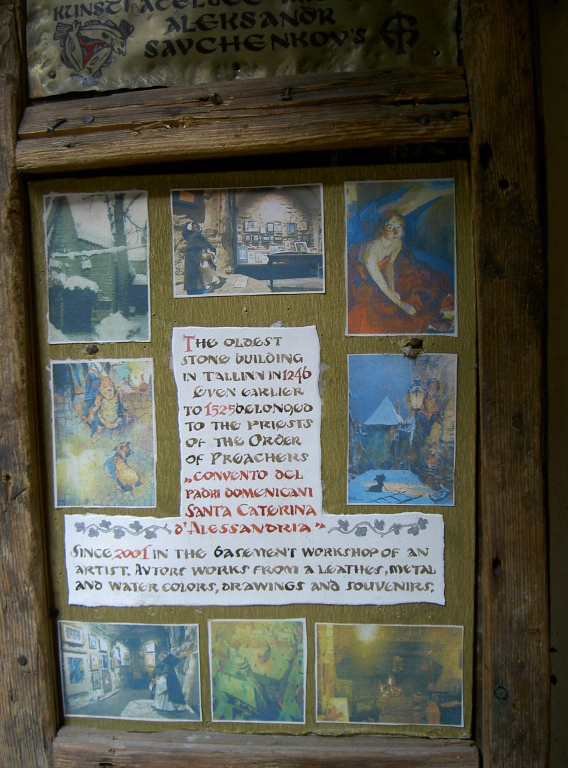 ALEKSANDR
SAVCHENKOV'S
THE OLDEST
STONE BUILDING
IN TALLINN IN 1246
EVEN EARLIER
TO 1525 BELONGED
TO THE PRIESTS
OF THE ORDER
OF PREACHERS
„CONVENTO DEL
PADRI DOMENICANI
SANTA CATERINA
D'ALESSANDRIA"
SINCE 2001 IN THE BASEMENT WORKSHOP OF AN
ARTIST. AVTORS WORKS FROM A LEATHES, METAL
AND WATER COLORS, DRAWINGS AND SOUVENIRS.